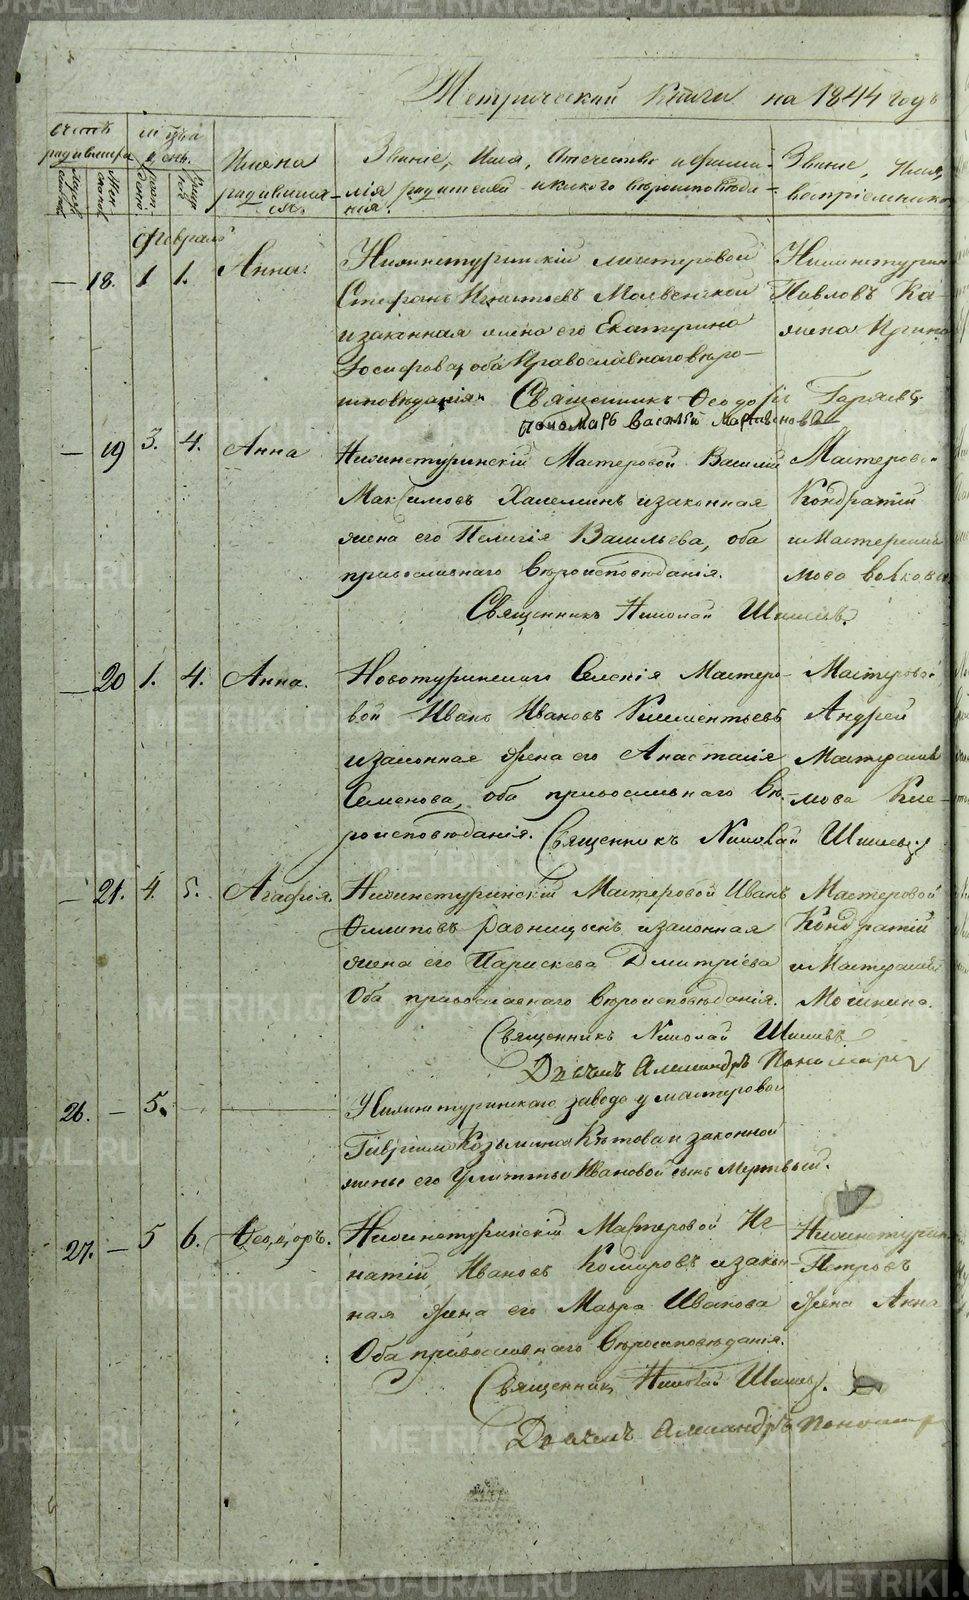 Метрической Книги на 1844 годъ
счетъ родившихся
мужеска
женска
м-ца и день
рожденія
крещенія
Имяна родившихся.
Званіе, Имя, Отечество и фамилія родителей и какого вѣроисповѣданія.
Званіе, Имя,
воспріемнико
Февраль
— 18. 1 1. Анна.
Нижнетуринскій мастеровой
Стефанъ Игнатьевъ
и законная жена его Екатерина
Іосифова, оба Православнаго вѣро-
исповѣданія. Священникъ Ѳеодоръ
пономарь Василій
Нижнетурин
Павловъ Ка-
жена Ирина
— 19 3. 4. Анна
Нижнетуринскій Мастеровой Василій
Максимовъ Халеминъ и законная
жена его Пелагія Васильева, оба
православнаго Вѣроисповѣданія.
Священникъ Николай Шишевъ.
Мастерово
Кондратій
и Мастерши
мова Волкова
— 20 1. 4. Анна.
Новотуринскаго Селенія Мастеро-
вой Иванъ Ивановъ Климентьевъ
и законная Жена его Анастасія
Семенова, оба православнаго Вѣ-
роисповѣданія. Священникъ Николай Шишевъ
Мастеровой
Андрей
мова Кле-
— 21. 4. 5. Агафія.
Нижнетуринскій Мастеровой Иванъ
Филиповъ и законная
жена его Параскева Дмитріева
Оба православнаго Вѣроисповѣданія.
Священникъ Николай Шишевъ
Дьячекъ Александръ Пономаревъ
Мастеровой
Кондратій
Мошкина.
26. — 5. —
Нижнетуринскаго завода у мастероваго
Гаврила Козьмина Кѣтова и законной
жены его Ивановой сынъ Мертвый.
27. — 5 6. Ѳеодоръ.
Нижнетуринскій Мастеровой Иг-
натій Ивановъ Комаровъ и закон-
ная Жена его Мавра Иванова
Оба православнаго Вѣроисповѣданія.
Священник Николай Шишевъ.
Дьячекъ Александръ Пономар
Нижнетурин
Петровъ
Жена Анна
METRIKI.GASO-URAL.RU